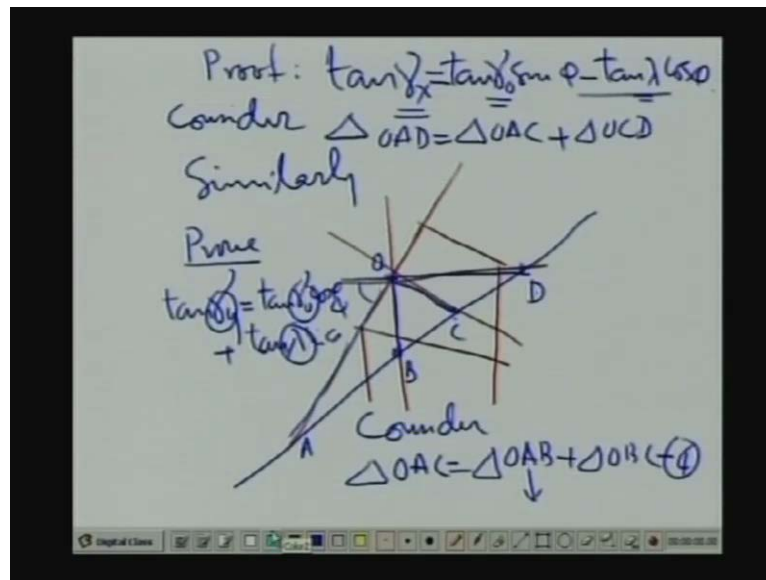 Proof: tan γx = tan γo sin φ - tan λ cos φ
Consider △OAD = △OAC + △OCD
Similarly
Prove
tan γy = tan γo cos φ
+ tan λ
O
D
C
B
A
Consider
△OAC = △OAB + △OBC
Digital Class
Color2
00:00:00.00